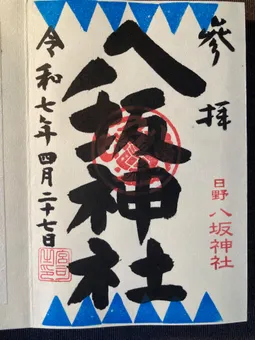 參拝
八坂神社
令和七年四月二十七日
日野
八坂神社